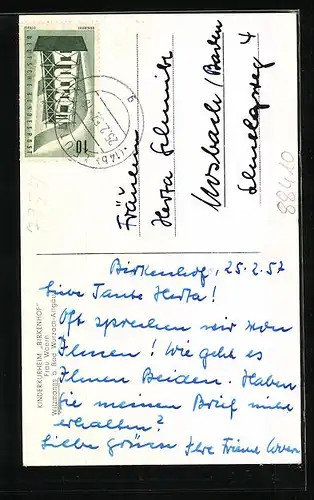 Birkenhof, 25.2.57
Liebe Tante Herta!
Oft sprechen wir von
Ihnen! Wie geht es
Ihnen Beiden. Haben
Sie meinen Brief nicht
erhalten?
Liebe Grüsse Ihre
Fräulein
Herta Schmitt
Mosbach/Baden
4
KINDERKURHEIM „BIRKENHOF"
Frau Worm
b. Bad Wurzach-Allgäu
DEUTSCHE BUNDESPOST
10
25.2.57
88410